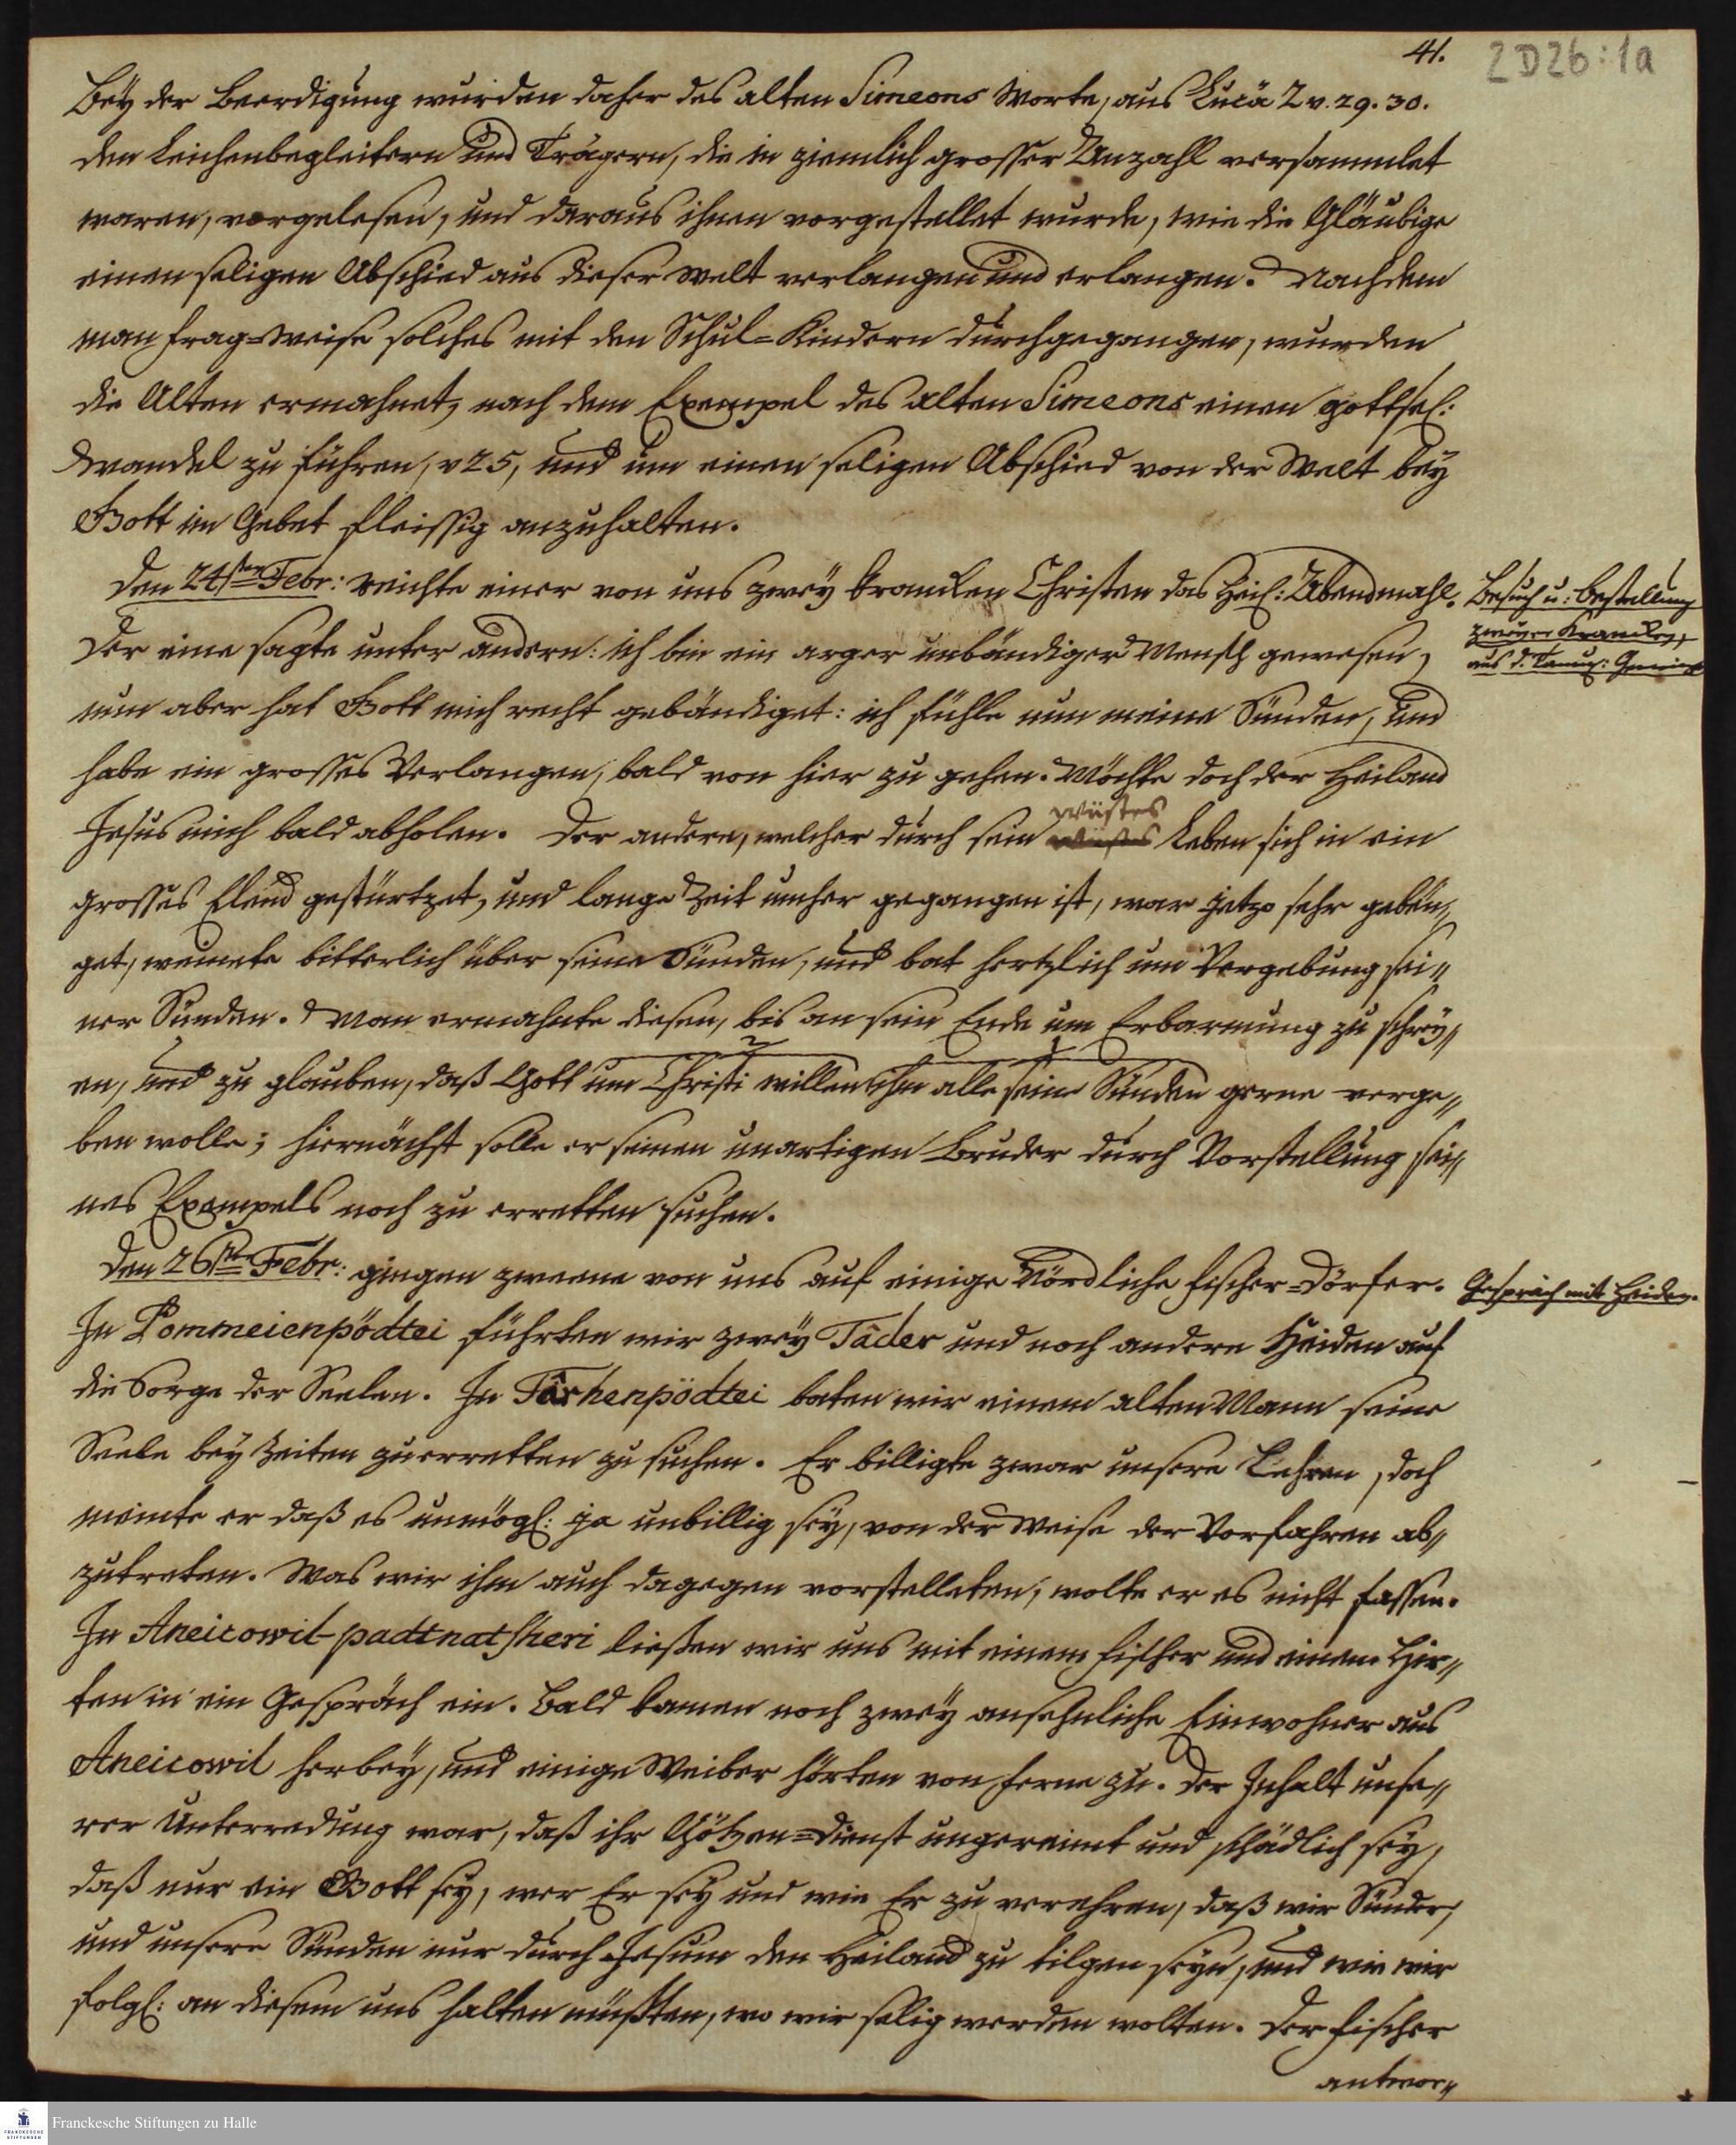 41.
2D26:1a
Bey der Beerdigung wurden daher des alten Simeons Worte, aus Lucä 2 v. 29. 30.
den Leichenbegleitern und Trägern, die in ziemlich grosser Anzahl versammlet
waren, vorgelesen, und daraus ihnen vorgestellet wurde, wie die Gläubige
einen seligen Abschied aus dieser Welt verlangen und erlangen. Nachdem
man frag-weise solches mit den Schul-Kindern durchgegangen, wurden
die Alten ermahnet, nach dem Exempel des alten Simeons einen gottsel:
Wandel zu führen, v 25, und um einen seligen Abschied von der Welt bey
Gott im Gebet fleissig anzuhalten.
Den 24sten Febr: reichte einer von uns zwey krancken Christen das Heil: Abendmahl.
Besuch u: Bestellung
zweyer Krancken,
aus d. Tamul: Gemeine
Der eine sagte unter andern: ich bin ein arger unbändiger Mensch gewesen,
nun aber hat Gott mich recht gebändiget: ich fühle nun meine Sünden, und
habe ein grosses Verlangen, bald von hier zu gehen. Möchte doch der Heiland
Jesus mich bald abholen. Der andere, welcher durch sein wüstes Leben sich in ein
grosses Elend gestürtzet, und lange Zeit umher gegangen ist, war jetzo sehr gebeu„
get, weinete bitterlich über seine Sünden, und bat hertzlich um Vergebung sei„
ner Sünden. Man ermahnte diesen, bis an sein Ende um Erbarmung zu schrey„
en, und zu glauben, daß Gott um Christi willen ihm alle seine Sünden gerne verge„
ben wolle; hiernächst solle er seinen unartigen Bruder durch Vorstellung sei„
nes Exempels noch zu erretten suchen.
Den 26sten Febr: gingen zweene von uns auf einige Nördliche Fischer-Dörfer.
Gespräch mit Heiden.
In Pommeienpödtei führten wir zwey Tâder und noch andere Heiden auf
die Sorge der Seelen. In Târhenpödtei baten wir einem alten Mann seine
Seele bey Zeiten zu erretten zu suchen. Er billigte zwar unsere Lehren, doch
meinte er daß es unmögl: ja unbillig sey, von der Weise der Vorfahren ab„
zutreten. Was wir ihm auch dagegen vorstelleten, wolte er es nicht fassen.
In Aneicowil-padtnatsheri ließen wir uns mit einem Fischer und einem Hir„
ten in ein Gespräch ein. Bald kamen noch zwey ansehnliche Einwohner aus
Aneicowil herbey, und einige Weiber hörten von ferne zu. Der Inhalt unse„
rer Unterredung war, daß ihr Götzen-Dienst ungereimt und schädlich sey,
daß nur ein Gott sey, wer Er sey und wie Er zu verehren, daß wir Sünder,
und unsere Sünden nur durch Jesum den Heiland zu tilgen seyn, und wie wir
folgl: an diesem uns halten müßten, wo wir selig werden wolten. Der Fischer
antwor„
Franckesche Stiftungen zu Halle